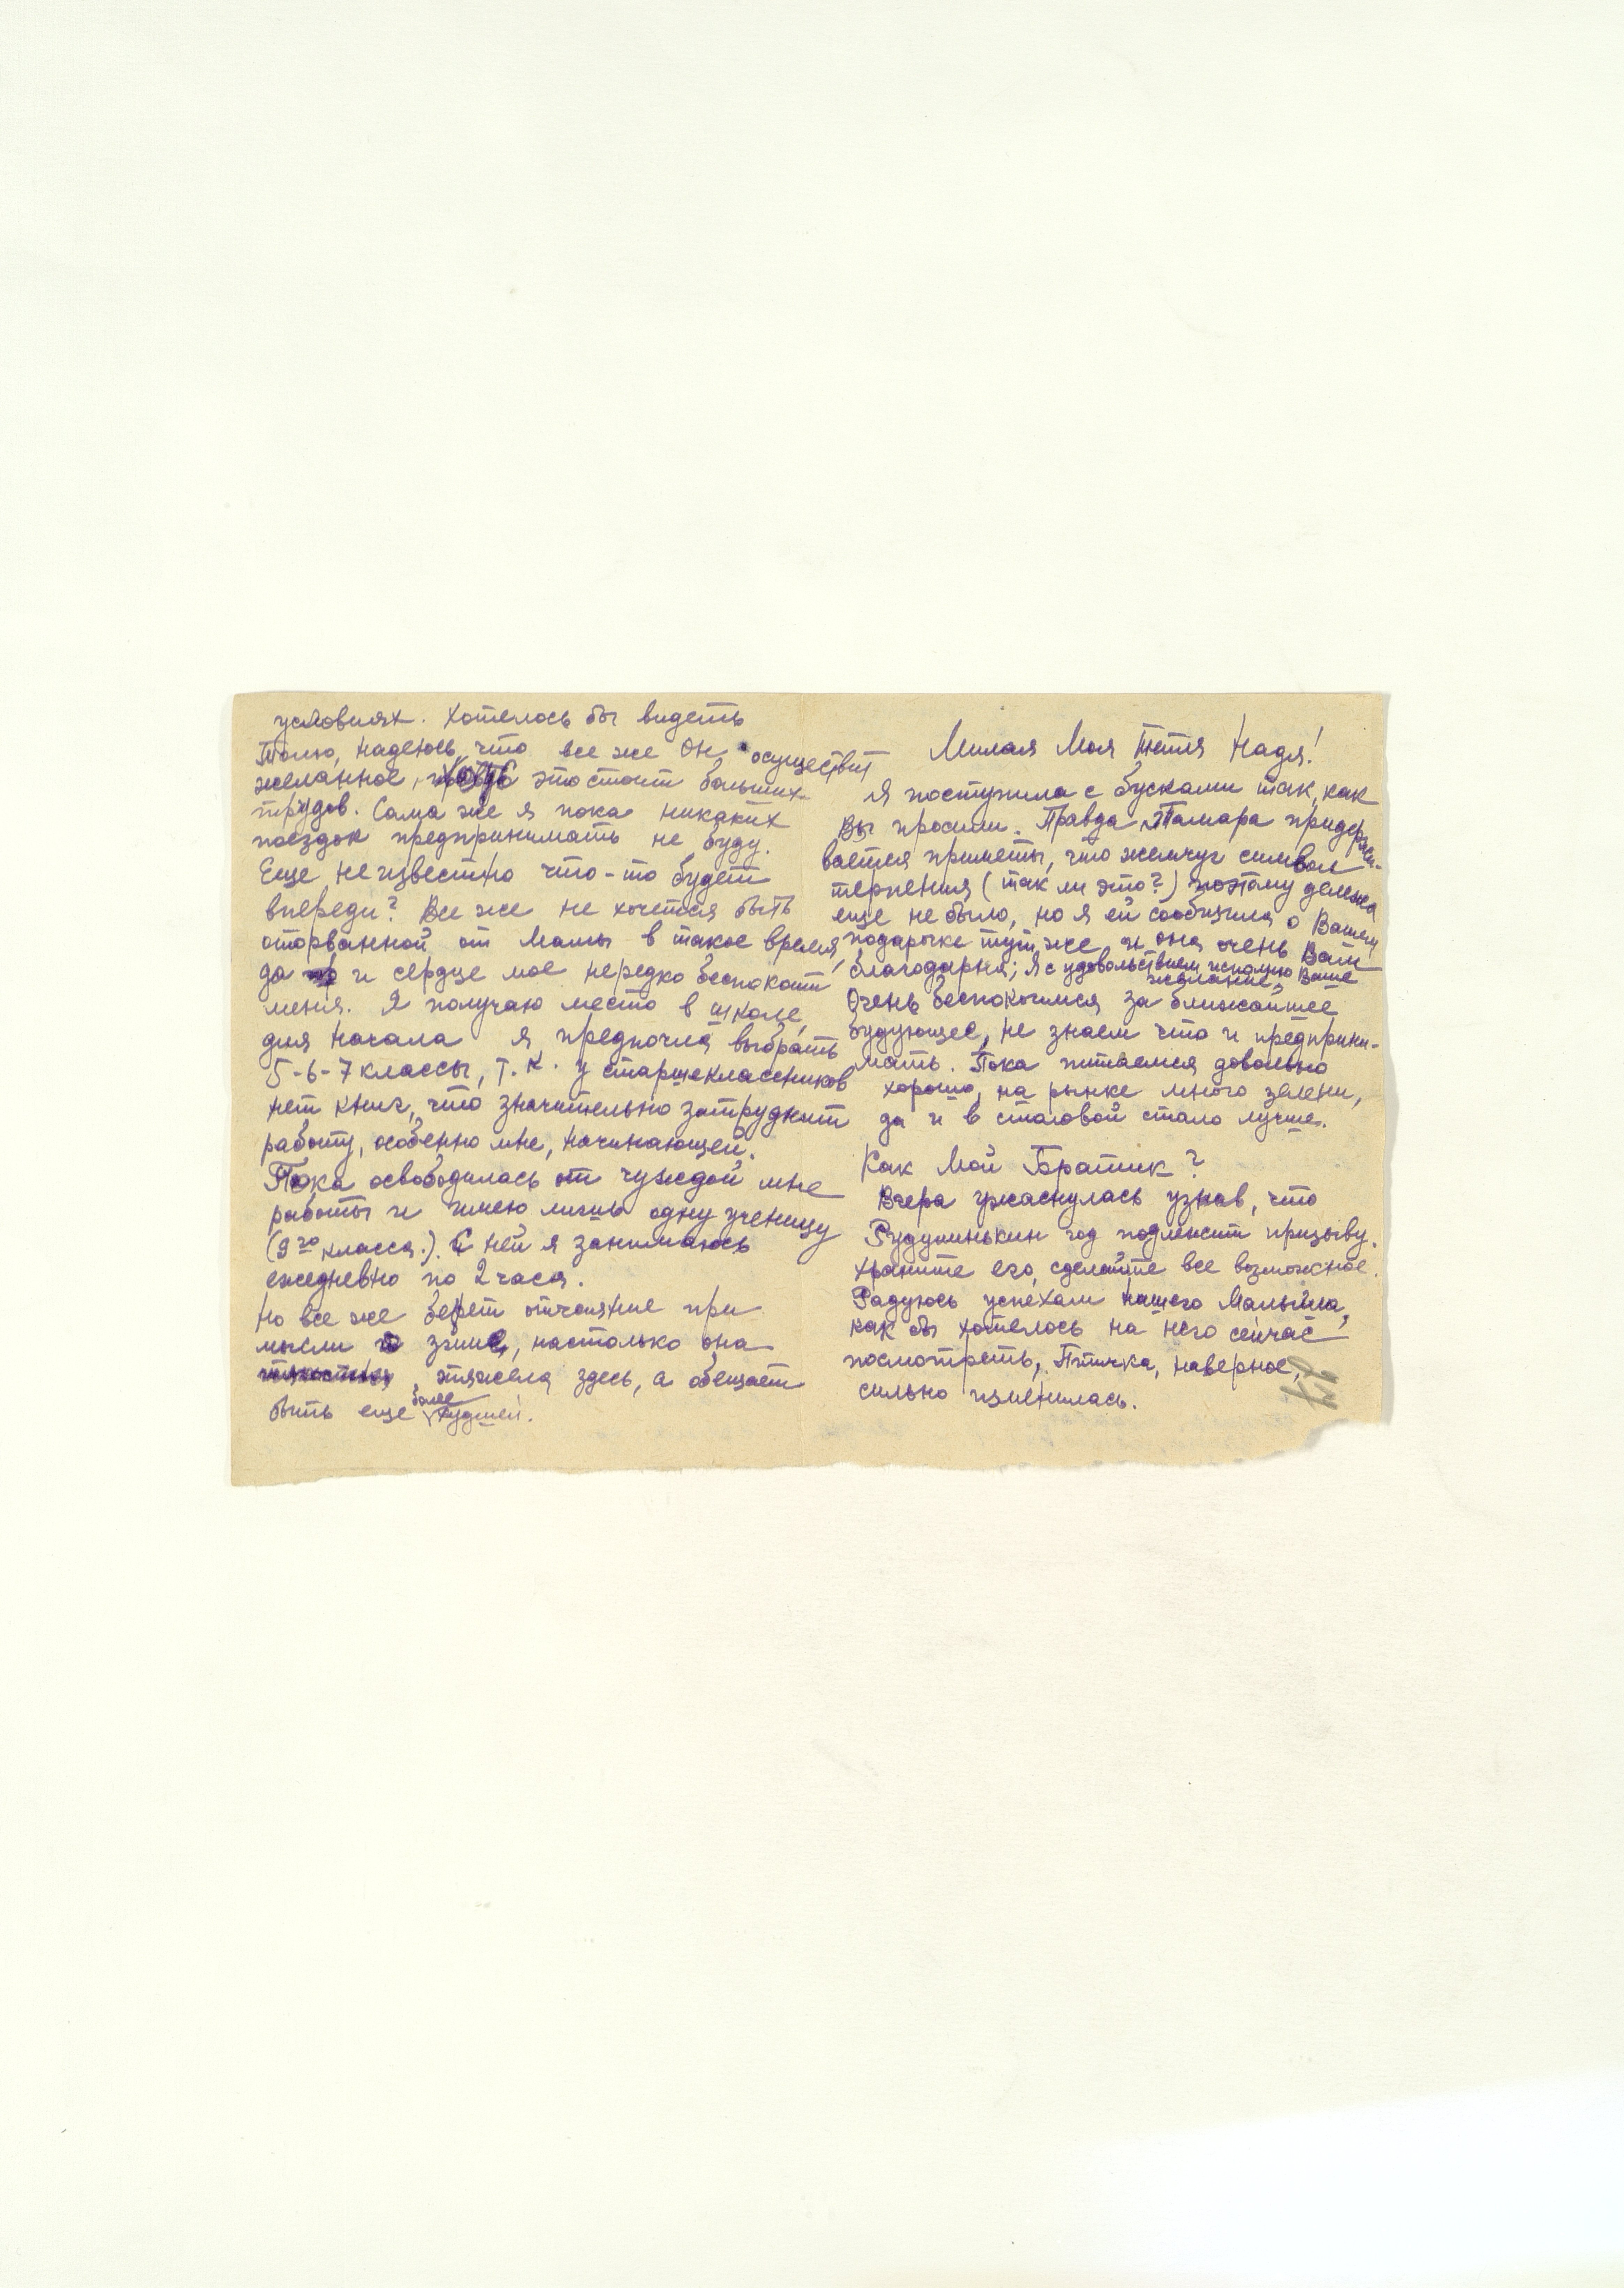 условиях. Хотелось бы видеть
Толю, надеюсь, что все же он осуществит
желанное, хоть это стоит больших
трудов. Сама же я пока никаких
поездок предпринимать не буду.
Еще неизвестно что-то будет
впереди? Все же не хочется быть
оторванной от Мамы в такое время,
да и сердце мое нередко беспокоит
меня. Я получаю место в школе,
для начала я предпочла выбрать
5-6-7 классы, т.к. у старшеклассников
нет книг, что значительно затруднит
работу, особенно мне, начинающей.
Пока освободилась от чуждой мне
работы и имею лишь одну ученицу
(9го класса.). С ней я занимаюсь
ежедневно по 2 часа.
Но все же берет отчаяние при
мысли о зиме, настолько она
тяжела здесь, а обещает
быть еще более худшей.
Милая Моя Тетя Надя!
Я поступила с бусками так, как
Вы просили. Правда, Тамара придержи-
вается приметы, что жемчуг символ
терпения (так ли это?) поэтому дележа
еще не было, но я ей сообщила о Вашем
подарочке тут же, и она очень Вам
благодарна; Я с удовольствием исполню Ваше
желание,
Очень беспокоимся за ближайшее
будующее, не знаем что и предприни-
мать. Пока питаемся довольно
хорошо, на рынке много зелени,
да и в столовой стало лучше.
Как Мой Братик?
Вчера ужаснулась узнав, что
год подлежит призыву.
Храните его, сделайте все возможное.
Радуюсь успехам нашего Малыша,
как бы хотелось на него сейчас
посмотреть, Птичка, наверное,
сильно изменилась.